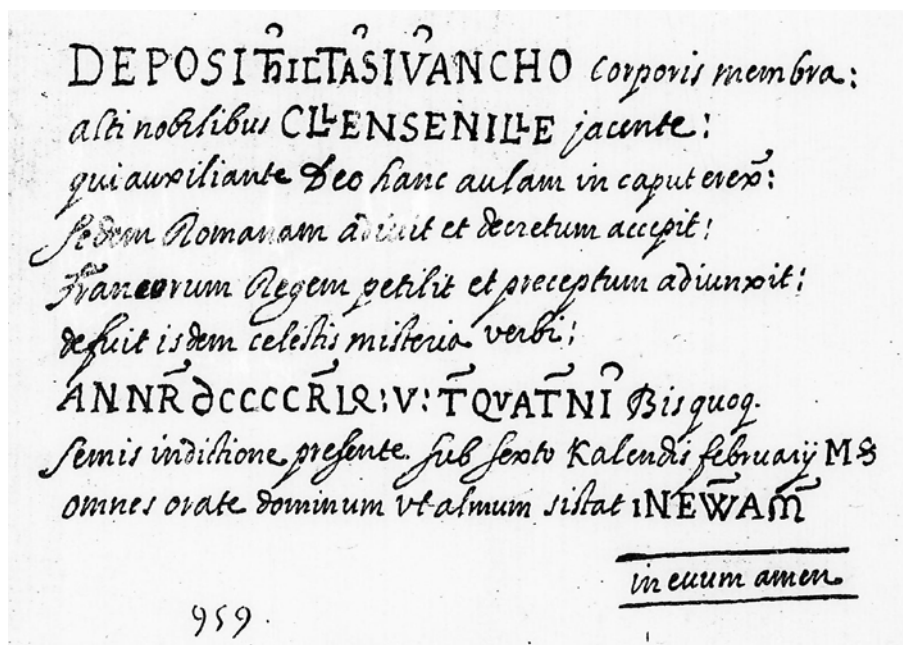 DEPOSITħICTASIVANCHO corporis membra:
alti nobilibus CLLENSENILLE jacente:
qui auxiliante Deo hanc aulam in caput erex:
sedem Romanam adiuit et decretum accepit:
Francorum Regem petilit et preceptum adiunxit:
defuit isdem celestis misteria verbi:
ANNR̃ ƏCCCCR̃LQ:V: T̃QVAT̃NI Bis quoq.
semis indictione presente. sub sexto Kalendis februarij M8
omnes orate dominum vt almum sistat INEW̃AM̃
in euum amen.
959.